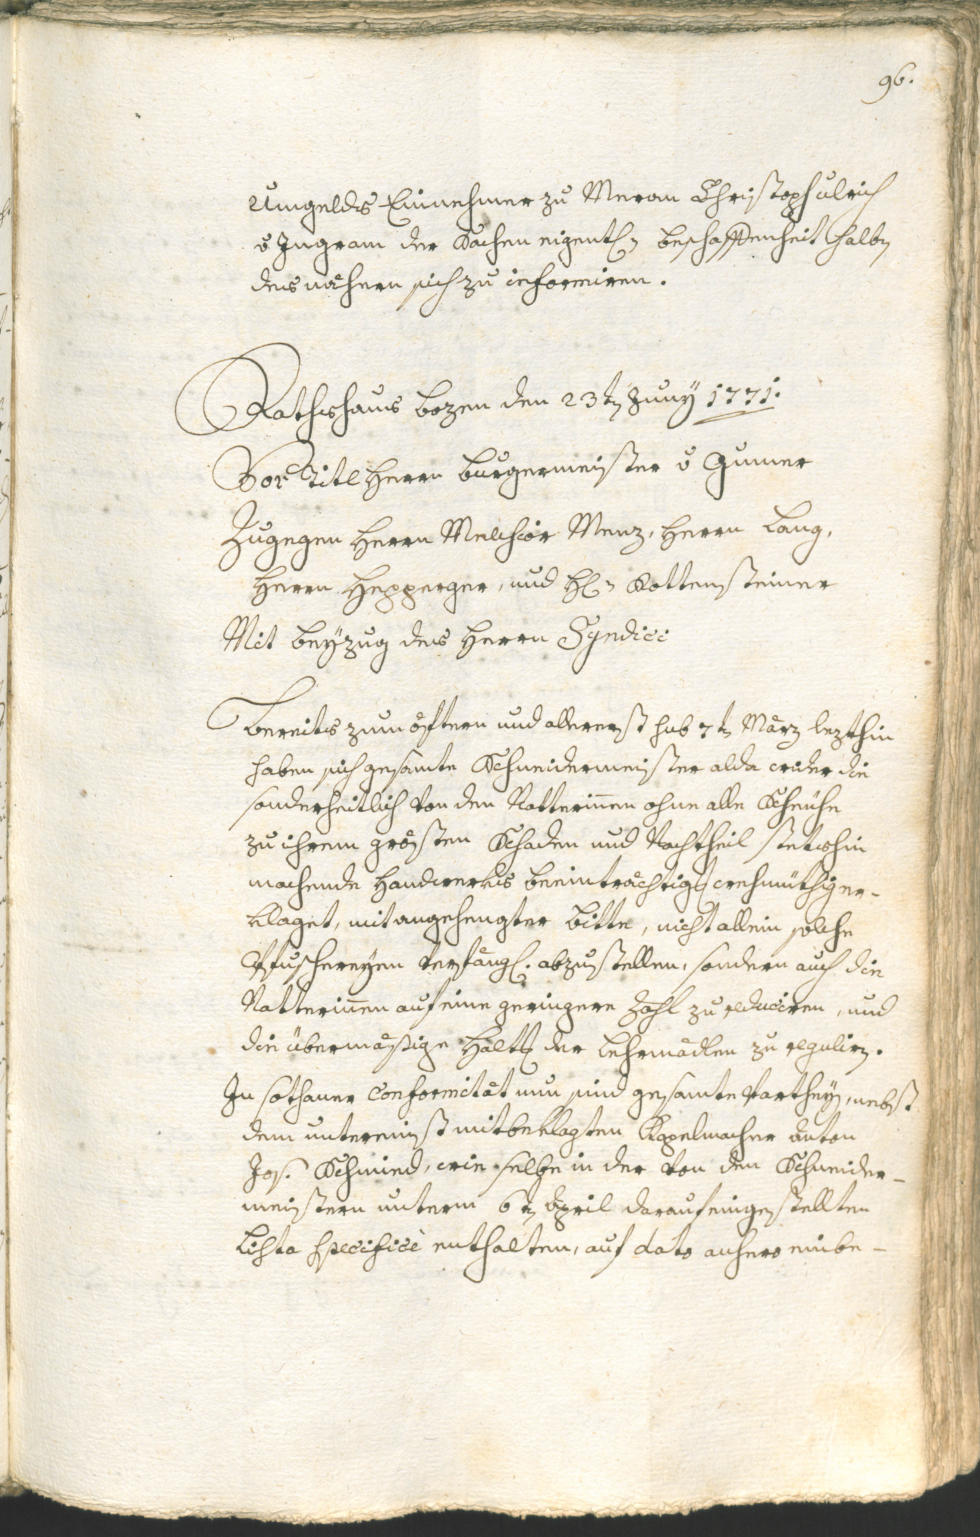 96.
Umgelds Einnehmer zu Meran Christoph Ulrich
v Ingram der Sachen eigentl. beschaffenheit halbn
des nähern sich zu informiren.
Rathshaus bozen den 23tn Juny 1771.
Vor Titl Herrn burgermeister v Gumer
Zugegen Herrn Melchior Menz, Herrn Lang,
Herrn Hepperger, und H. Rottensteiner
Mit beÿzug des Herrn Syndici
Bereits zum öftern und allererst sub 7tn März lezthin
haben sich gesamte Schneidermeister alda wider die
sonderheitlich von den Natterinen ohne alle Scheuhe
zu ihrem grösten Schaden und Nachtheil stetshin
machende Handwerks beeinträchtig. wehmüthig er-
klaget, mit angehengter bitte, nicht allein solche
Pfuschereyen verfängl. abzustellen, sondern auch die
Natterinen auf eine geringere Zahl zu reduciren, und
die übermäßige Halt. der Lehrmädlen zu regulirn.
In sothaner Conformität nun sind gesamte Partheyn, nebst
dem unter einst mitbeklagten Kapelmacher Anton
Jos. Schmied, wie selbe in der von den Schneider-
meistern unterm 6tn April darauf eingestellten
Lista specificè enthalten, auf dato anhero einbe-